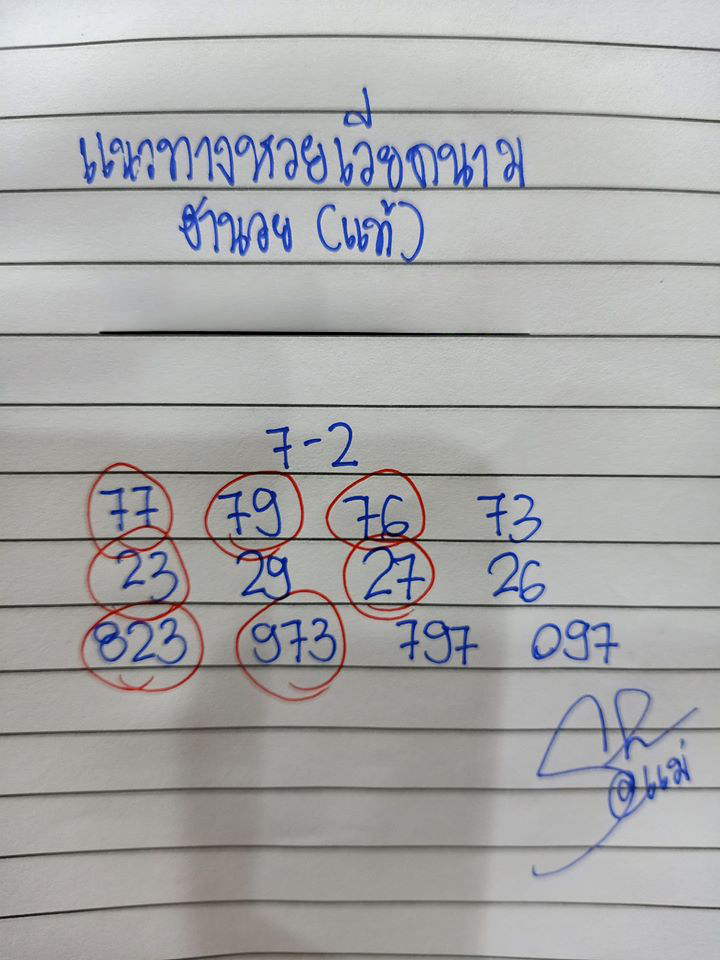 แนวทางหวยเวียดนาม
ฮานอย (แท้)
7-2
77 79 76 73
23 29 27 26
823 973 797 097
@แม่